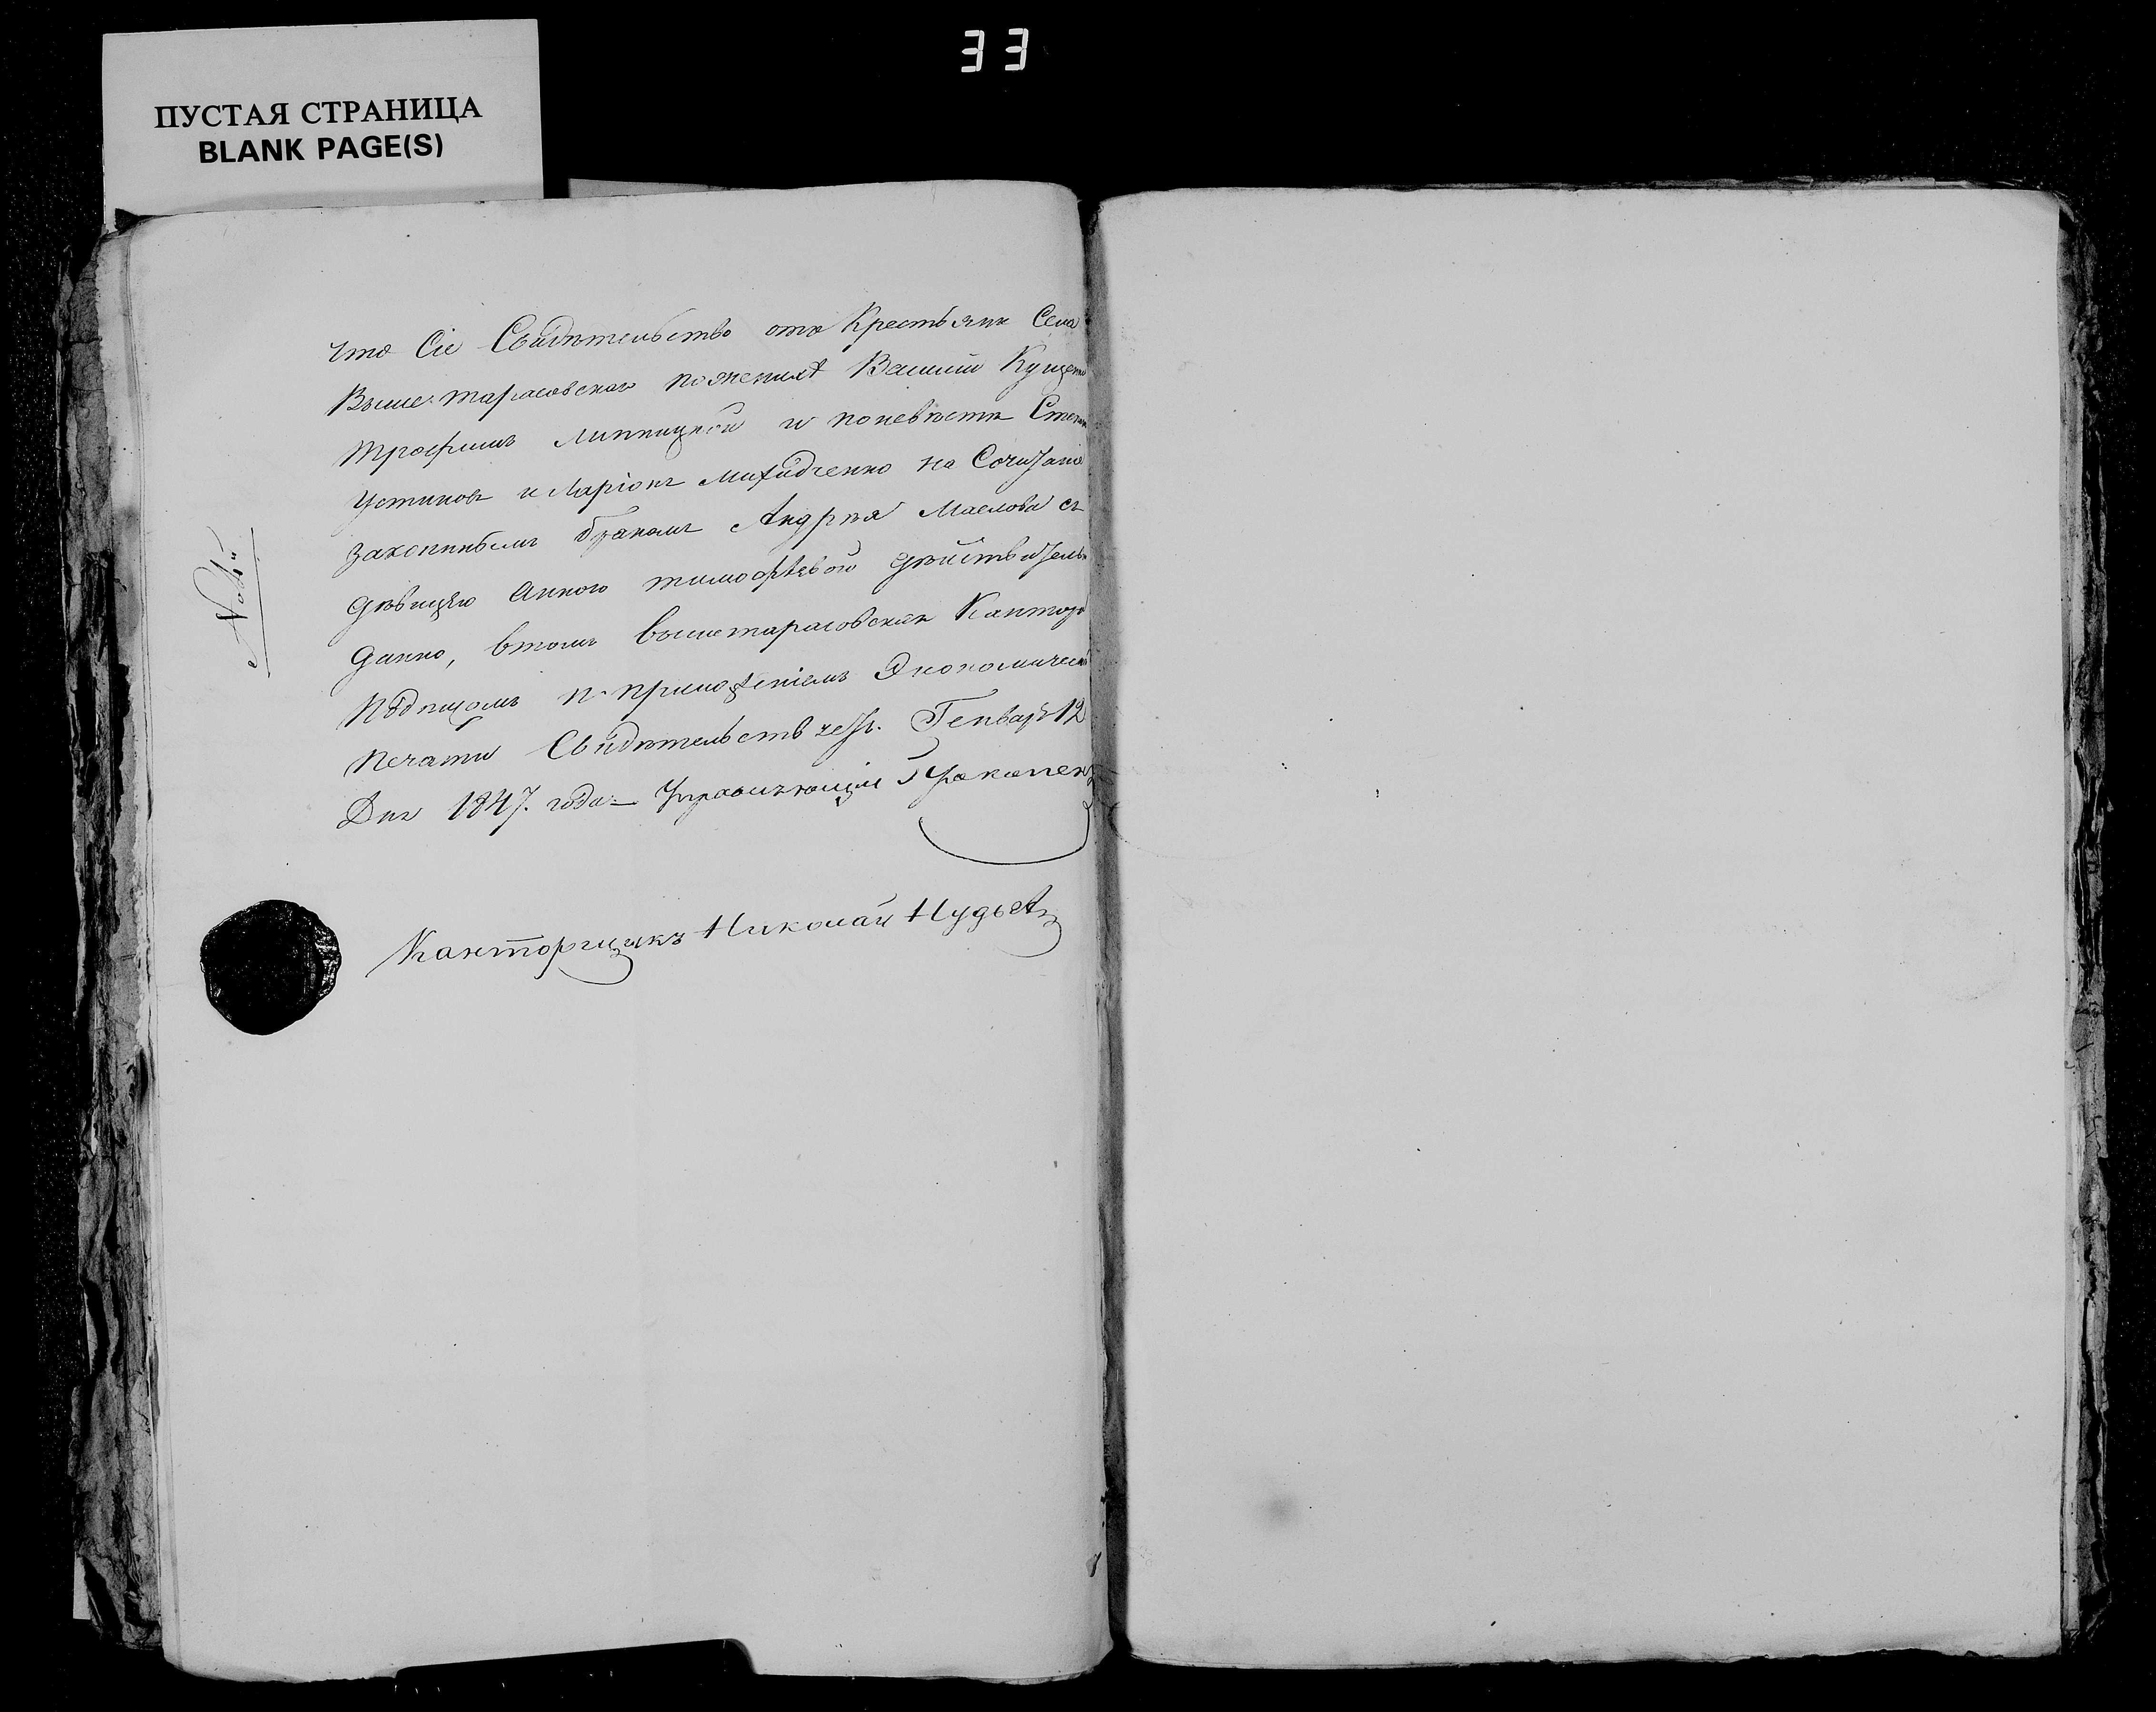 33
ПУСТАЯ СТРАНИЦА
BLANK PAGE(S)
что Сіе Свидѣтельство отъ Крестьянъ Села
Вышетарасовскаго пожениху Василій
Трофимъ Липницкой и поневѣстѣ
Устиновъ и Ларіонъ на Сочитаніе
законнымъ бракомъ Андрѣя Маслова съ
дѣвицею Анною Тимофѣевой
данно, втомъ вышетарасовская Кантора
подписомъ приложеніемъ Экономической
печати Свидѣтельствуетъ. Генваря 12
Дня 1847. года Управляющій
Канторщикъ Николай